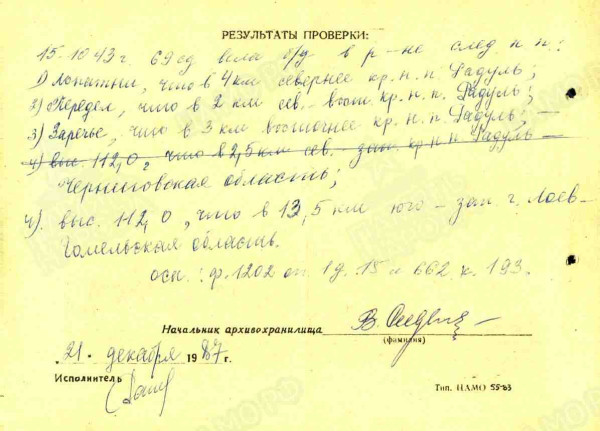 РЕЗУЛЬТАТЫ ПРОВЕРКИ:
15.10.43 г. 69 сд вела б/д в р-не след. н.п.:
1) Лопатни, что в 4 км севернее кр. н.п. Радуль;
2) Передел, что в 2 км сев.-вост. кр. н.п. Радуль;
3) Заречье, что в 3 км восточнее кр. н.п. Радуль; —
4) выс. 112,0, что в 2,5 км сев. - зап. кр. н.п. Радуль —
Черниговская область;
4). выс. 112,0, что в 13,5 км юго-зап. г. Лоев-
Гомельская область.
осн.: ф. 1202 оп. 1 д. 15 л. 662 к. 193.
Начальник архивохранилища
(фамилия)
„21" декабря 1987 г.
Исполнитель
Тип. ЦАМО 55-83